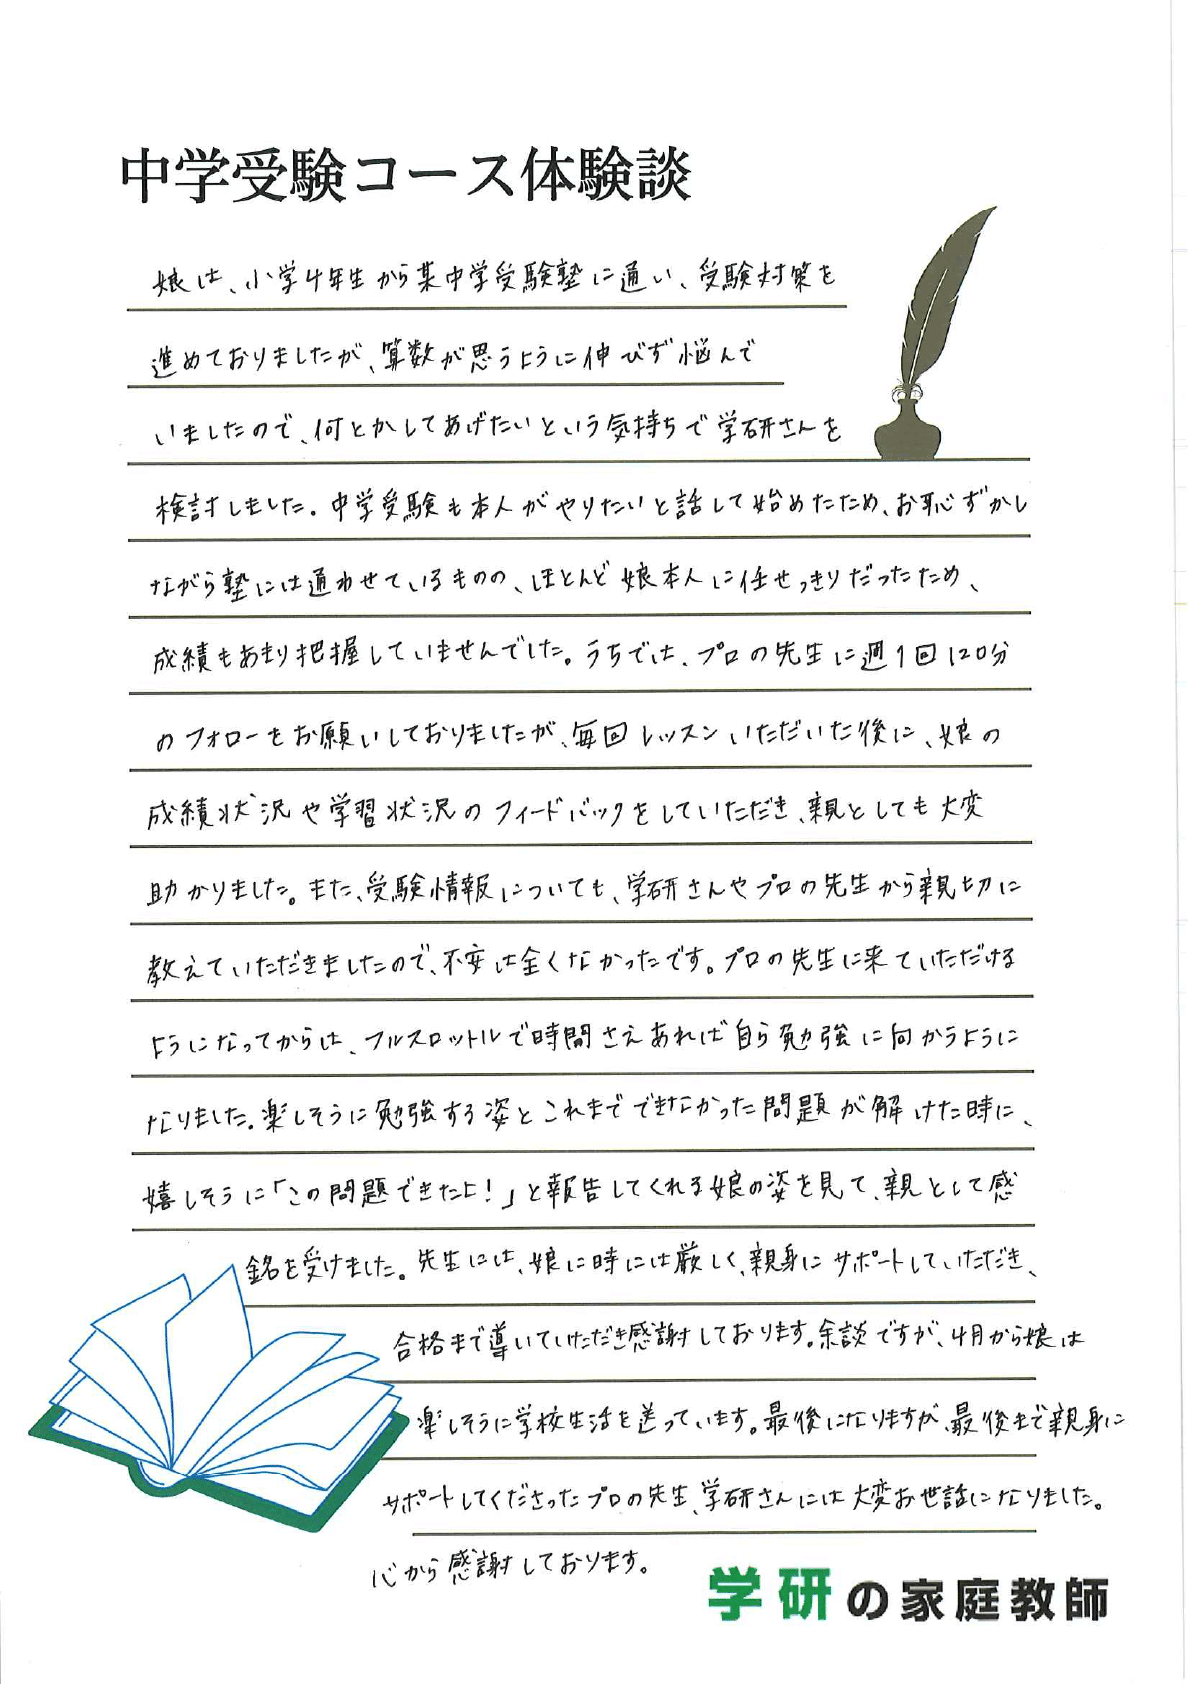 中学受験コース体験談
娘は、小学4年生から某中学受験塾に通い、受験対策を
進めておりましたが、算数が思うように伸びず悩んで
いましたので、何とかしてあげたいという気持ちで学研さんを
検討しました。中学受験も本人がやりたいと話して始めたため、お恥ずかし
ながら塾には通わせているものの、ほとんど娘本人に任せっきりだったため、
成績もあまり把握していませんでした。うちでは、プロの先生に週1回120分
のフォローをお願いしておりましたが、毎回レッスンいただいた後に、娘の
成績状況や学習状況のフィードバックをしていただき、親としても大変
助かりました。また、受験情報についても、学研さんやプロの先生から親切に
教えていただきましたので、不安は全くなかったです。プロの先生に来ていただける
ようになってからは、フルスロットルで時間さえあれば自ら勉強に向かうように
なりました。楽しそうに勉強する姿とこれまでできなかった問題が解けた時に、
嬉しそうに「この問題できたよ!」と報告してくれる娘の姿を見て、親として感
銘を受けました。先生には、娘に時には厳しく、親身にサポートしていただき、
合格まで導いていただき感謝しております。余談ですが、4月から娘は
楽しそうに学校生活を送っています。最後になりますが、最後まで親身に
サポートしてくださったプロの先生、学研さんには大変お世話になりました。
心から感謝しております。
学研の家庭教師